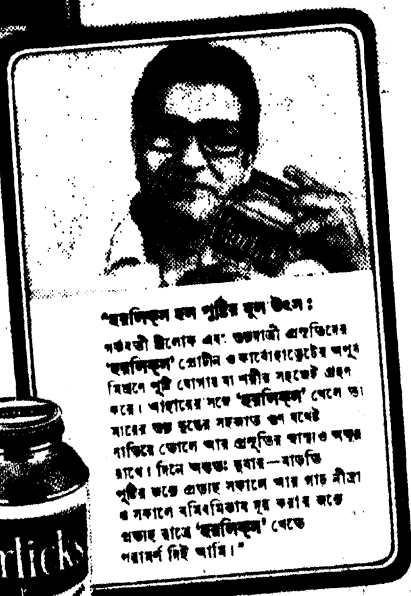 'হরলিক্‌স হল পুষ্টির মূল উৎস :
গর্ভবতী স্ত্রীলোক এবং স্তন্যদাত্রী প্রসূতিদের
'হরলিক্‌স' প্রোটিন ও কার্বোহাড্রেটের অপূর্ব
মিশ্রণে পুষ্টি যোগায় যা শরীর সহজেই গ্রহণ
করে। আহারের সঙ্গে 'হরলিক্‌স' খেলে তা
মায়ের স্তন দুগ্ধের সহজাত গুণ যথেষ্ট
বাড়িয়ে তোলে আর প্রসূতির স্বাস্থ্যও অক্ষুণ্ণ
রাখে। দিনে অন্ততঃ দুবার—বাড়তি
পুষ্টির জন্যে প্রত্যহ সকালে আর গাঢ় নীদ্রা
ও সকালে বমিবমিভাব দূর করার জন্যে
প্রত্যহ রাত্রে 'হরলিক্‌স' খেতে
পরামর্শ দিই আমি।"
rlicks